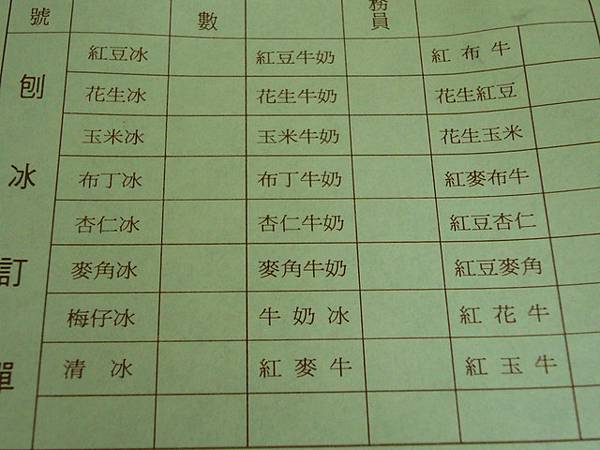 號 數 務員
刨冰訂單
紅豆冰 紅豆牛奶 紅布牛
花生冰 花生牛奶 花生紅豆
玉米冰 玉米牛奶 花生玉米
布丁冰 布丁牛奶 紅麥布牛
杏仁冰 杏仁牛奶 紅豆杏仁
麥角冰 麥角牛奶 紅豆麥角
梅仔冰 牛奶冰 紅花牛
清冰 紅麥牛 紅玉牛